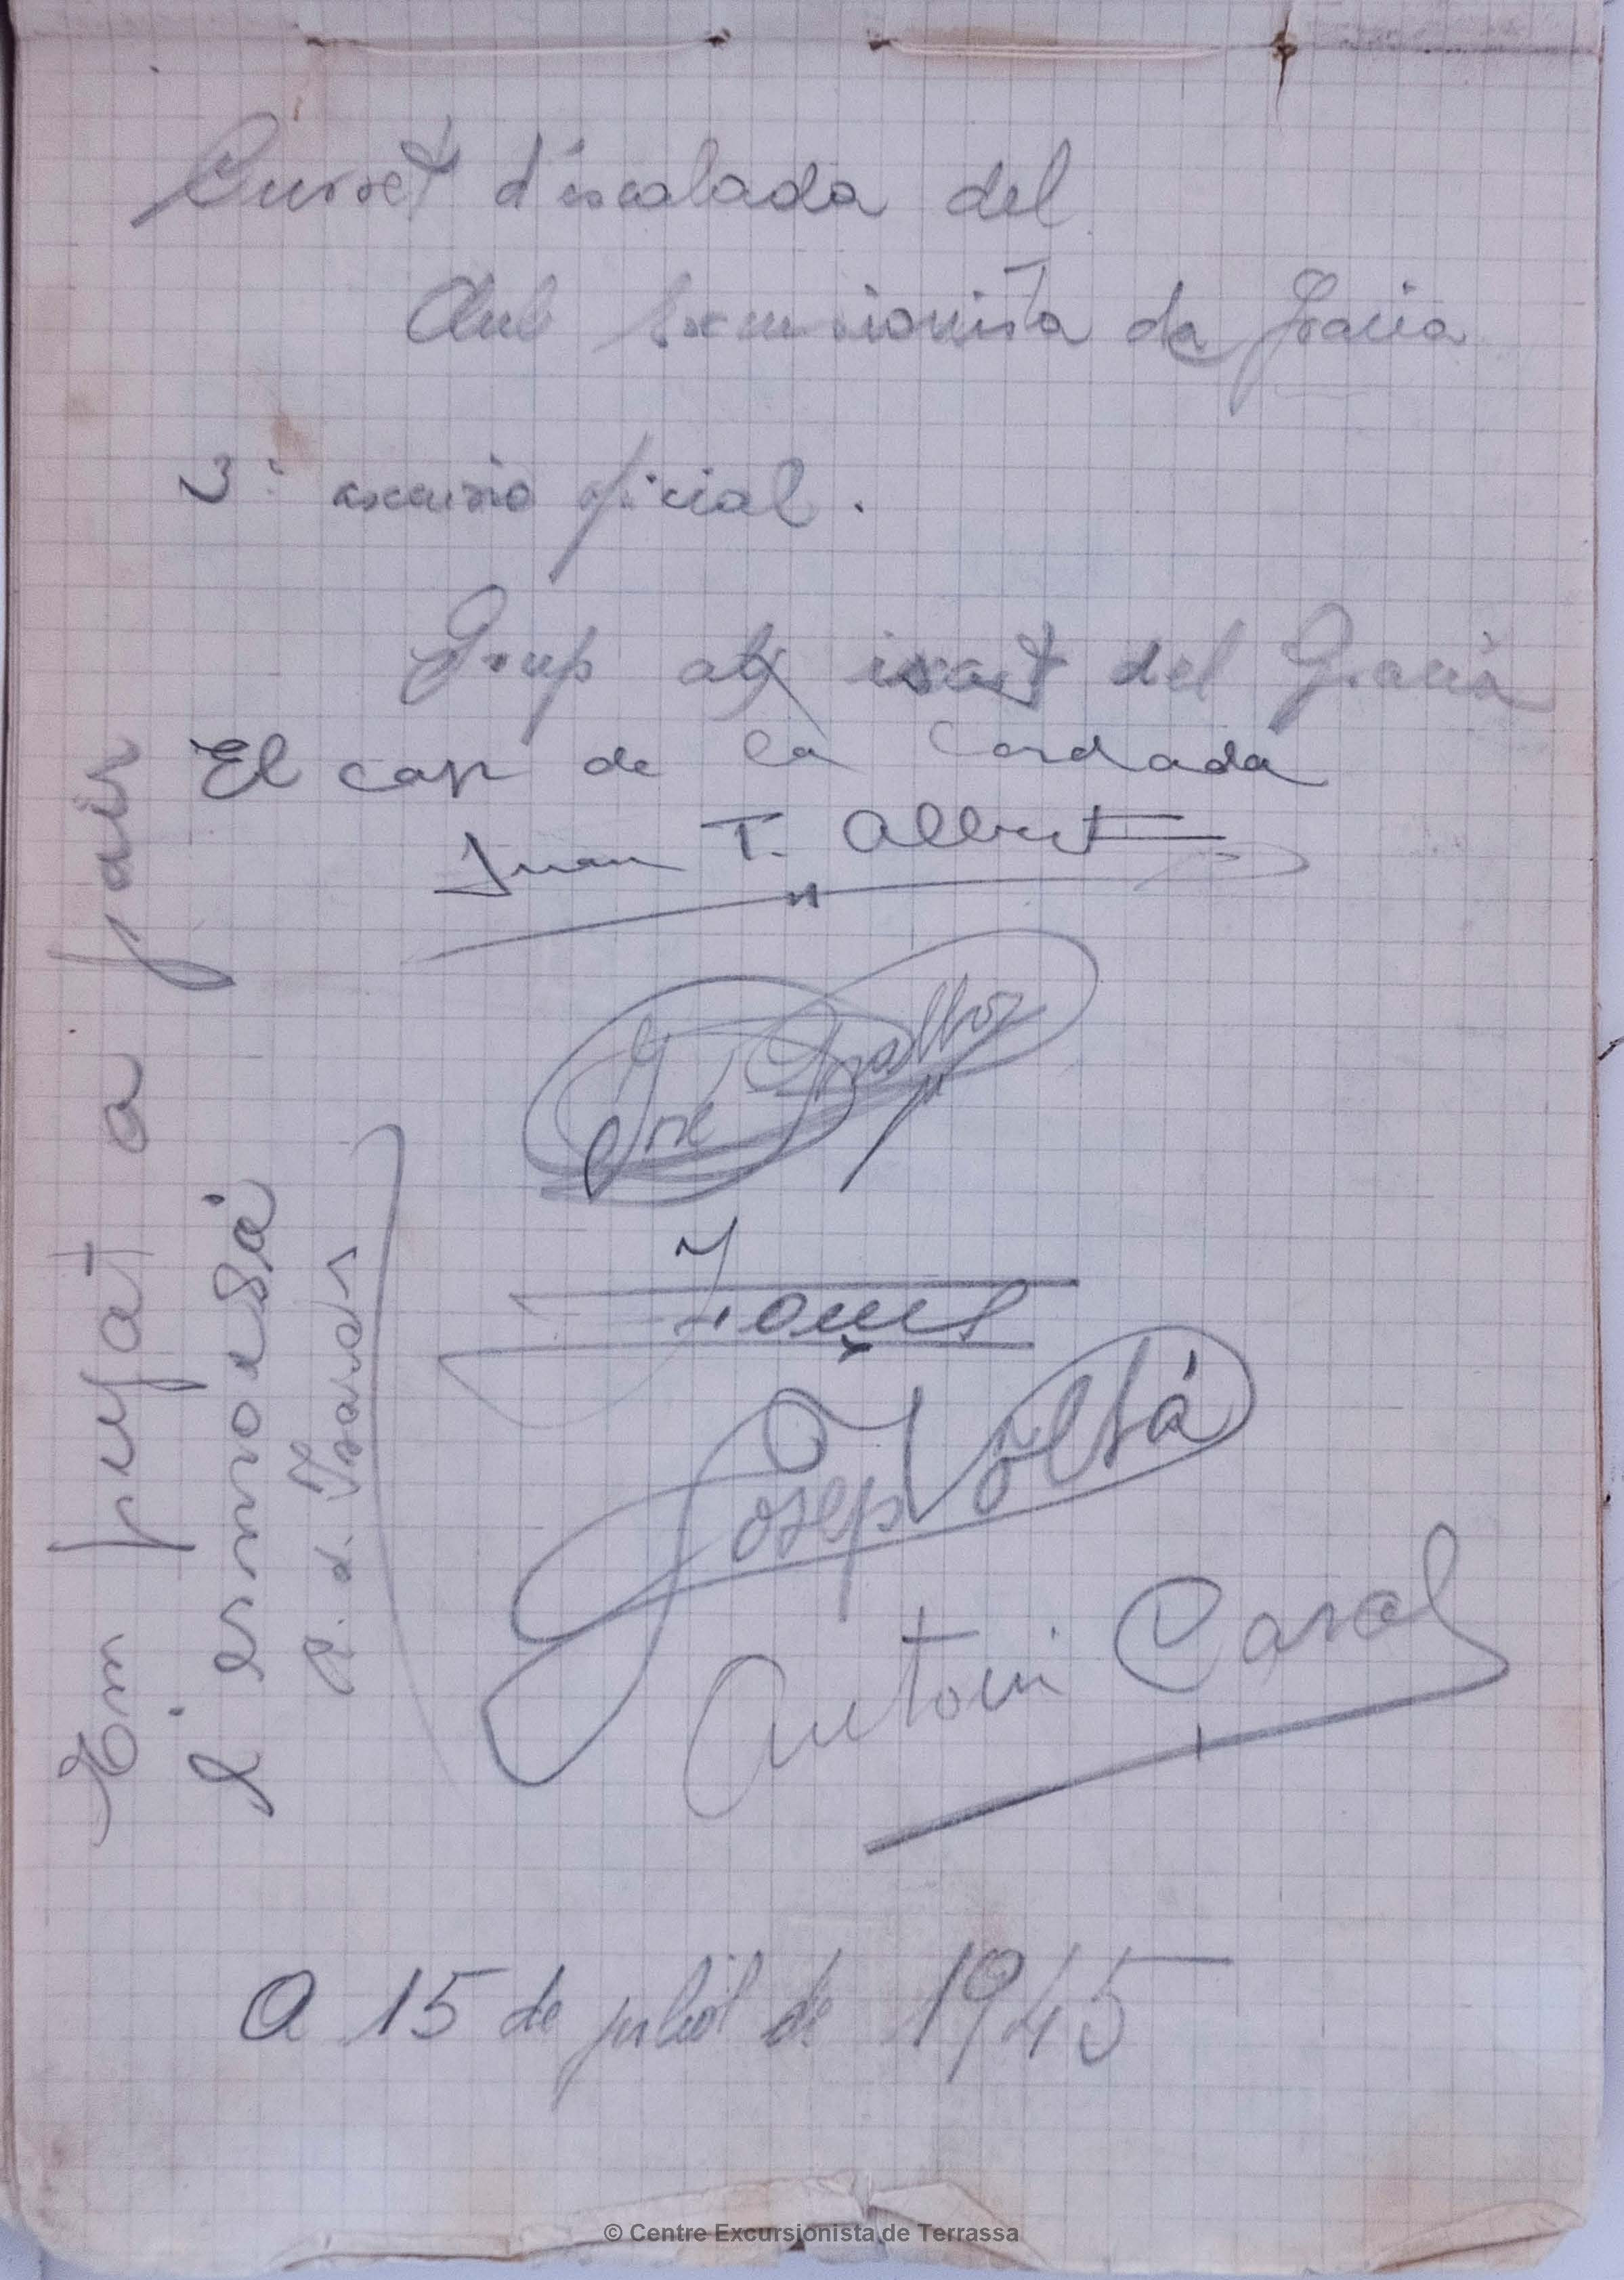 Curset d'escalada del
Club Excursionista de Gracia
3ª ascensio oficial.
Grup isart del Gracià
El cap de la Cordada
Juan T. Albert
José
Josep Voltá
Antoni Casal
Em pujat a fair
l'esmorsá
A 15 de juliol de 1945
© Centre Excursionista de Terrassa